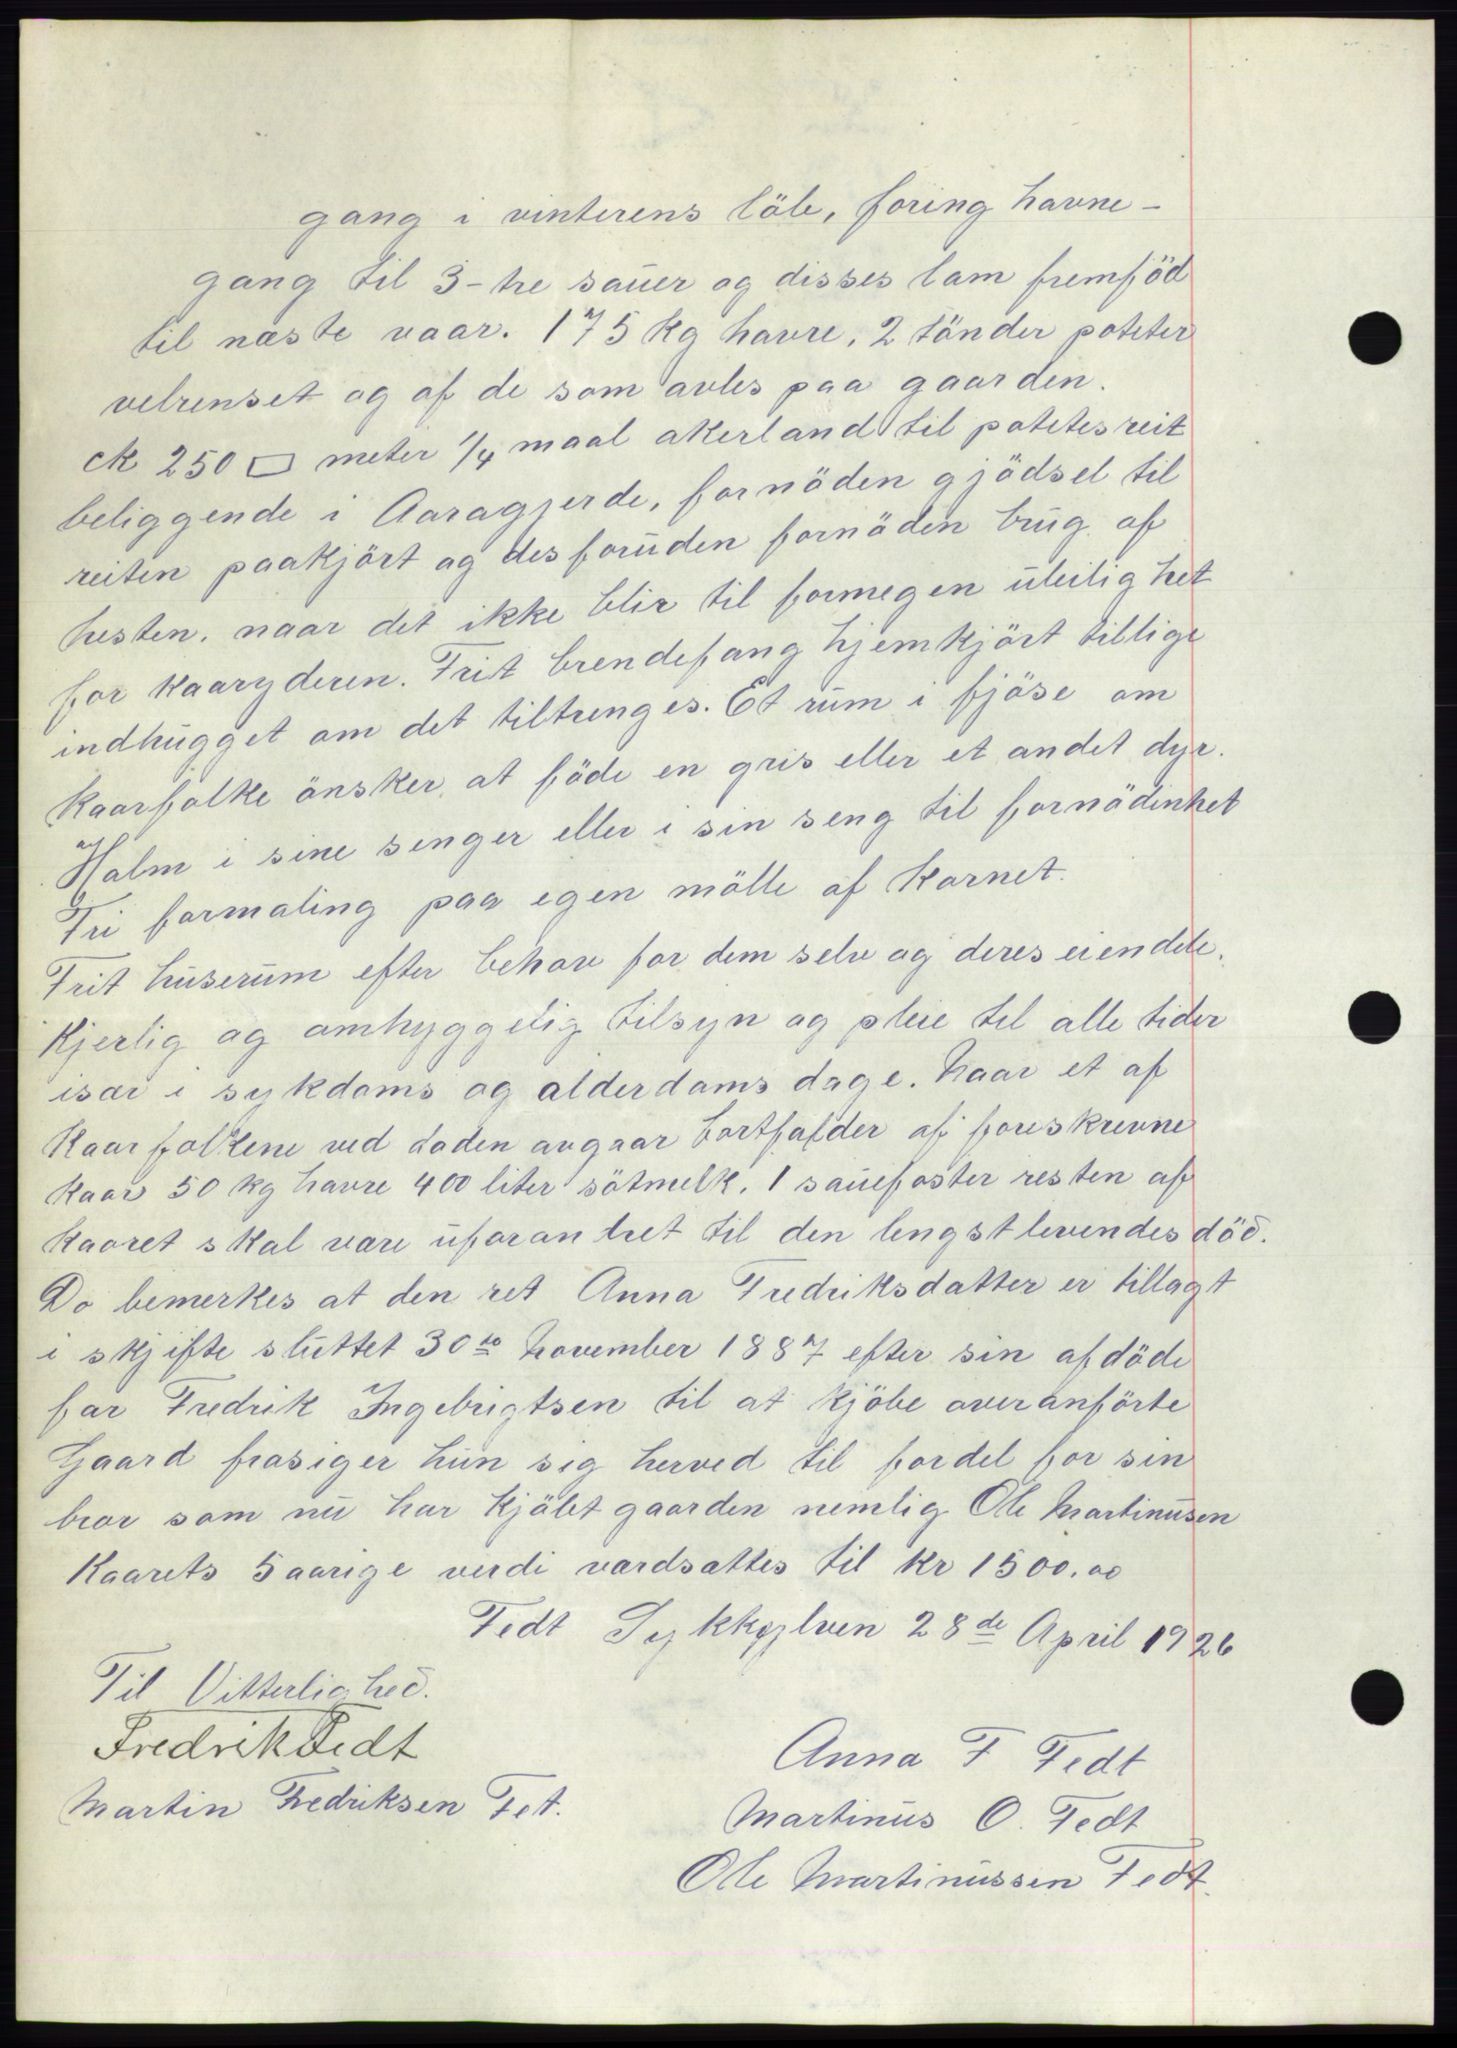 gang i vinterens löb, foring havne-
gang til 3-tre sauer og disses lam fremföd
til næste vaar. 175 kg havre, 2 tönder poteter
velrenset og af de som avles paa gaarden.
ck 250 □ meter 1/4 maal akerland til potetesreit
beliggende i Aaragjerde, fornöden gjödsel til
reiten paakjört og desforuden fornöden brug af
hesten. naar det ikke blir til formegen uleilighet
for kaaryderen. Frit brendefang hjemkjört tillige
indhugget om det tiltrenges. Et rum i fjöse om
kaarfolke önsker at föde en gris eller et andet dyr.
og Halm i sine senger eller i sin seng til fornödenhet
Fri formaling paa egen mölle af kornet.
Frit huserum efter behov for dem selv og deres eiendele.
Kjerlig og omhyggelig tilsyn og pleie til alle tider
især i sykdoms og alderdoms dage. Naar et af
Kaarfolkene ved döden avgaar bortfalder af foreskrevne
kaar 50 kg havre 400 liter sötmelk. 1 sauefoster resten af
kaaret skal være uforantret til den lengstlevendes död.
Do bemerkes at den ret Anna Fredriksdatter er tillagt
i skjifte sluttet 30te November 1887 efter sin afdöde
far Fredrik Ingebrigtsen til at kjöbe overanförte
Gaard frasiger hun sig herved til fordel for sin
bror som nu har kjöbt gaarden nemlig Ole Martinusen
Kaarets 5 aarige verdi værdsættes til kr 1500.00
Fedt Sykkylven 28de April 1926
Til Vitterlighed.
Fredrik Fedt
Martin Fredriksen Fet.
Anna F Fedt
Martinus O. Fedt
Ole Martinussen Fedt.